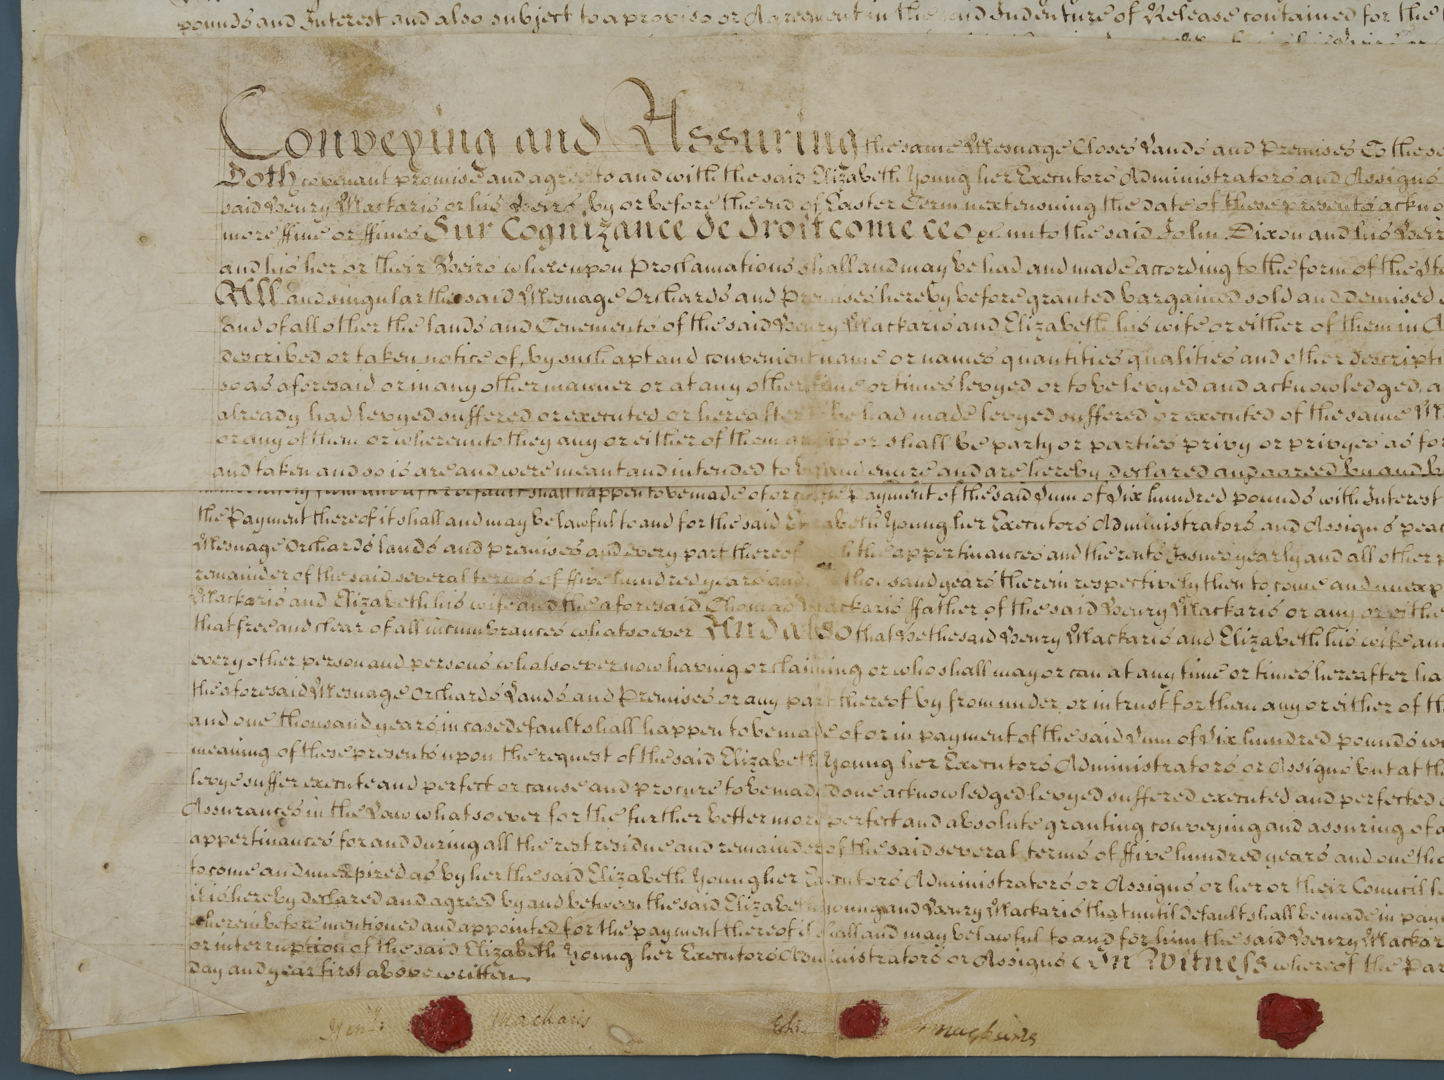 pounds and Interest and also subject to a proviso or Agreement in the said Indenture of Release contained for the
Conveying and Assuring the same Mesuage Closes Lands and Premises To these
Doth covenant promise and agree to and with the said Elizabeth Young her Executors Administrators and Assigns
said Henry Mackaris or his Heirs, by or before the end of Easter Term next ensuing the date of these presents ackno
more ffine or ffines Sur Cognizance de droit come ceo &c unto the said John Dixon and his Heirs
and his her or their Heirs whereupon Proclamations shall and may be had and made according to the form of the St
All and singular the said Mesuage Orchards and Premises hereby before granted bargained sold and demised
and of all other the lands and Tenements of the said Henry Mackaris and Elizabeth his wife or either of them in
described or taken notice of, by such apt and convenient name or names quantities qualities and other descripti
so as aforesaid or in any other manner or at any other time or times levyed or to be levyed and acknowledged, a
already had levyed suffered or executed or hereafter to be had made levyed suffered or executed of the same M
or any of them or whereunto they any or either of them are is or shall be party or parties privy or privyes as for
and taken and so is are and were meant and intended to be and enure and are hereby declared and agreed by and b
from and after default shall happen to be made of or in the Payment of the said Sum of Six hundred pounds with Interest
the Payment thereof it shall and may be lawful to and for the said Elizabeth Young her Executors Administrators and Assigns peac
Mesuage Orchards lands and premises and every part thereof with the appertinances and the rents Issues yearly and all other p
remainder of the said several terms of ffive hundred years and one thousand years therein respectively then to come and unexp
Mackaris and Elizabeth his wife and the aforesaid Thomas Mackaris ffather of the said Henry Mackaris or any or eithe
that free and clear of all incumbrances whatsoever And also that he the said Henry Mackaris and Elizabeth his wife an
every other person and persons whatsoever now having or claiming or who shall may or can at any time or times hereafter ha
the aforesaid Mesuage Orchards Lands and Premises or any part thereof by from under, or in trust for them any or either of th
and one thousand years, in case default shall happen to be made of or in payment of the said Sum of Six hundred pounds w
meaning of these presents upon the request of the said Elizabeth Young her Executors Administrators or Assigns but at th
levye suffer execute and perfect or cause and procure to be made done acknowledged levyed suffered executed and perfected
Assurances in the Law whatsoever for the further better more perfect and absolute granting conveying and assuring of a
appertinances for and during all the rest residue and remainder of the said several terms of ffive hundred years and one tho
to come and unexpired as by her the said Elizabeth Young her Executors Administrators or Assigns or her or their Council l
it is hereby declared and agreed by and between the said Elizabeth Young and Henry Mackaris that until default shall be made in paym
herein before mentioned and appointed for the payment thereof it shall and may be lawful to and for him the said Henry Mackar
or interruption of the said Elizabeth Young her Executors Administrators or Assigns In Witness whereof the Par
day and year first above written
Henry: Mackaris Eliz: Mackaris